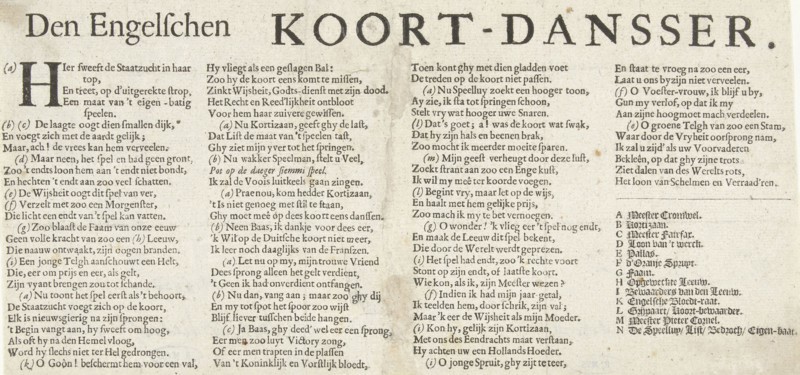 Den Engelſchen KOORT-DANSSER.
(a) HIer ſweeft de Staatzucht in haar
top,
En treet, op d'uitgerekte ſtrop,
Een maat van 't eigen-batig
ſpeelen.
(b) (c) De laagte oogt dien ſmallen dijk,
En voegt zich met de aardt gelijk;
Maar, ach! de vrees kan hem verveelen.
(d) Maar neen, het ſpel en had geen gront,
Zoo 't endts loon hem aan 't endt niet bondt,
En hechten 't endt aan zoo veel ſchatten.
(e) De Wijsheit oogt dit ſpel van ver,
(f) Verzelt met zoo een Morgenſter,
Die licht een endt van 't ſpel kan vatten.
(g) Zoo blaaſt de Faam van onze eeuw
Geen volle kracht van zoo een (h) Leeuw,
Die naauw ontwaakt, zijn oogen branden.
(i) Een jonge Telgh aanſchouwt een Helt,
Die, eer om prijs en eer, als gelt,
Zijn vyant brengen zou tot ſchande.
(a) Nu toont het ſpel eerſt als 't behoort,
De Staatzucht voegt zich op de koort,
Elk is nieuwsgierig na zijn ſprongen:
't Begin vangt aan, hy ſweeft om hoog,
Als oft hy na den Hemel vloog,
Word hy ſlechs niet ter Hel gedrongen.
(k) O Goôn! beſchermt hem voor een val,
Hy vliegt als een geſlagen Bal:
Zoo hy de koort eens komt te miſſen,
Zinkt Wijsheit, Godts-dienſt met zijn dood.
Het Recht en Reed'lijkheit ontbloot
Voor hem haar zuivere gewiſſen.
(a) Nu Kortizaan, geeft ghy de laſt,
Dat Liſt de maat van 't ſpeelen taſt,
Ghy ziet mijn yver tot het ſpringen.
(b) Nu wakker Speelman, ſtelt u Veel,
Pas op de daeger ſlemmi ſpeel.
Ik zal de Voois luitkeels gaan zingen.
(a) Prae nou, kom helder Kortizaan,
't Is niet genoeg met ſtil te ſtaan,
Ghy moet meê op dees koort eens danſſen.
(b) Neen Baas, ik dankje voor dees eer,
'k Wil op de Duitſche koort niet meer,
Ik leer noch daaglijks van de Franſzen.
(a) Let nu op my, mijn trouwe Vriend
Dees ſprong alleen het gelt verdient,
't Geen ik had onverdient ontfangen.
(b) Nu dan, vang aan; maar zoo ghy dij
En my tot ſpot het ſpoor zoo wijſt
Blijf liever tuſſchen beide hangen.
(c) Ja Baas, ghy deed' wel eer een ſprong,
Eer men zoo luyt Victory zong,
Of eer men trapten in de plaſſen
Van 't Koninklijk en Vorſtlijk bloedt,
Toen kont ghy met dien gladden voet
De treden op de koort niet paſſen.
(a) Nu Speelluy zoekt een hooger toon,
Ay zie, ik ſta tot ſpringen ſchoon,
Stelt vry wat hooger uwe Snaren.
(l) Dat 's goet; a! was de koort wat ſwak,
Dat hy zijn hals en beenen brak,
Zoo mocht ik meerder moeite ſparen.
(m) Mijn geeſt verheugt door deze luſt,
Zoekt ſtrant aan zoo een Enge kuſt,
Ik wil my meê ter koorde voegen.
(l) Begint vry, maar let op de wijs,
En haalt met hem gelijke prijs,
Zoo mach ik my te bet vernoegen.
(g) O wonder! 'k vlieg eer 't ſpel nog endt,
En maak de Leeuw dit ſpel bekent,
Die door de Werelt werdt geprezen.
(i) Het ſpel had endt, zoo 'k rechte voort
Stont op zijn endt, of laatſte koort.
Wie kon, als ik, zijn Meeſter wezen?
(f) Indien ik had mijn jaar getal,
Ik teelden hem, door ſchrik, zijn val;
Maar 'k eer de Wijsheit als mijn Moeder.
(i) Kon hy, gelijk zijn Kortizaan,
Met ons des Eendrachts maat verſtaan,
Hy achten uw een Hollands Hoeder.
(i) O jonge Spruit, ghy zijt te teer,
En ſtaat te vroeg na zoo een eer,
Laat u ons by zijn niet verveelen.
(f) O Voeſter-vrouw, ik blijf u by,
Gun my verlof, op dat ik my
Aan zijne hoogmoet mach verdeelen.
(e) O groene Telgh van zoo een Stam,
Waar door de Vryheit oorſprong nam,
Ik zal u zijd' als uw Voorvaderen
Bekleên, op dat ghy zijne trots
Ziet dalen van des Werelts rots,
Het loon van Schelmen en Verraad'ren.
A Meeſter Cromwel.
B Kortizaan.
C Meeſter Fairfax.
D Loon van 't werck.
E Pallas.
F d'Oranje Spruyt.
G Faam.
H Opgeweckte Leeuw.
I Bewaarders van den Leeuw.
K Engelſche Bloedt-raat.
L Spinaert, Koort-bewaarder.
M Meeſter Pieter Cornel.
N De Speelluy, Liſt, Bedroch, Eigen-baat.